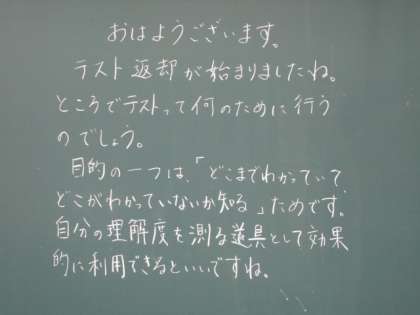 おはようございます。
テスト返却が始まりましたね。
ところでテストって何のために行う
のでしょう。
目的の一つは、「どこまでわかっていて
どこがわかっていないか知る」ためです。
自分の理解度を測る道具として効果
的に利用できるといいですね。